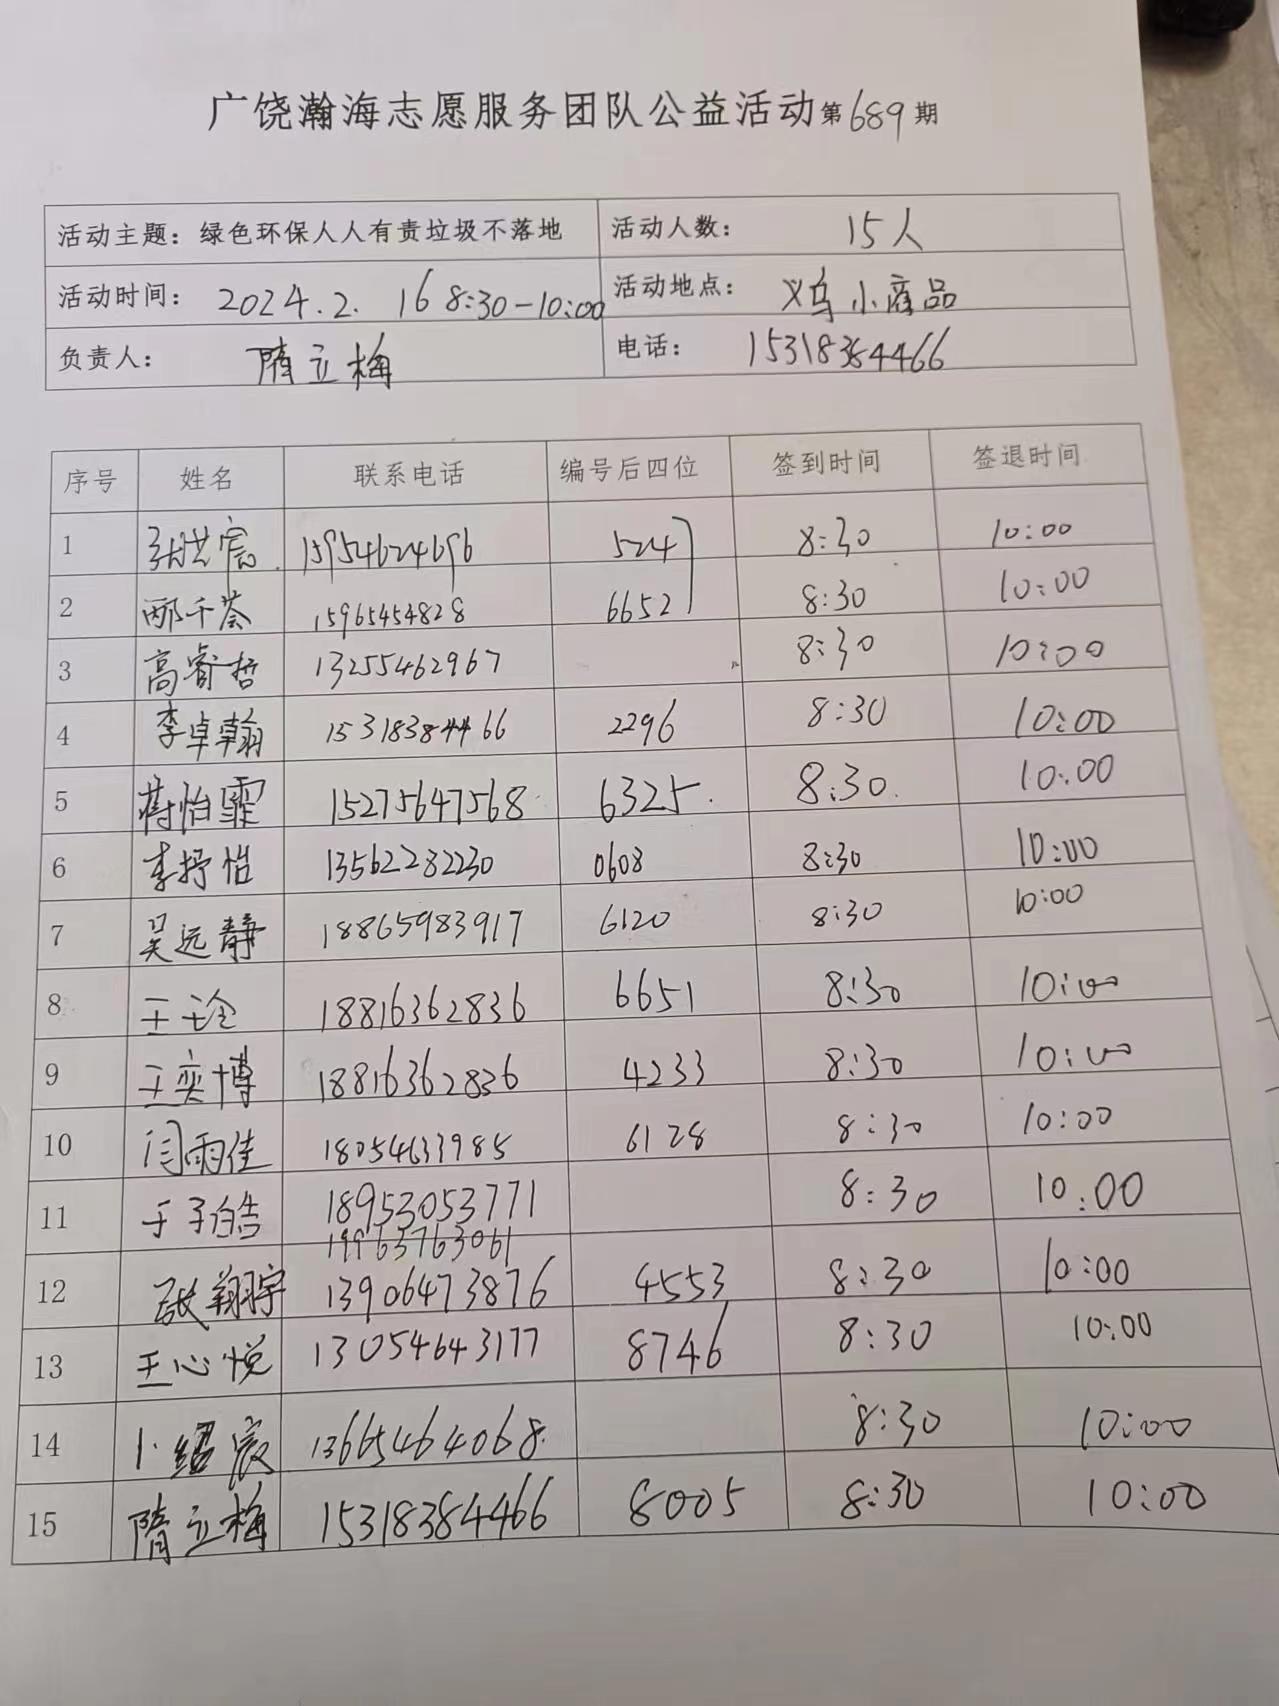 广饶瀚海志愿服务团队公益活动第689期
活动主题：绿色环保人人有责垃圾不落地 活动人数： 15人
活动时间： 2024.2. 16 8:30-10:00 活动地点： 义乌小商品
负责人： 隋立梅 电话： 15318384466
序号 姓名 联系电话 编号后四位 签到时间 签退时间
1 张洪宸 15954624696 524 8:30 10:00
2 邴千荟 15965454828 6652 8:30 10:00
3 高睿哲 13255462967 8:30 10:00
4 李卓翰 15318384466 2296 8:30 10:00
5 蒋怡霏 15275647568 6325 8:30 10:00
6 李抒怡 13562282230 0608 8:30 10:00
7 吴远静 18865983917 6120 8:30 10:00
8 王 18816362836 6651 8:30 10:00
9 王奕博 18816362836 4233 8:30 10:00
10 闫雨佳 18054633985 6128 8:30 10:00
11 于子皓 18953053771 8:30 10:00
19963763061
12 张翔宇 13906473876 4553 8:30 10:00
13 王心悦 13054643177 8746 8:30 10:00
14 卜绍宸 13665464068 8:30 10:00
15 隋立梅 15318384466 8005 8:30 10:00